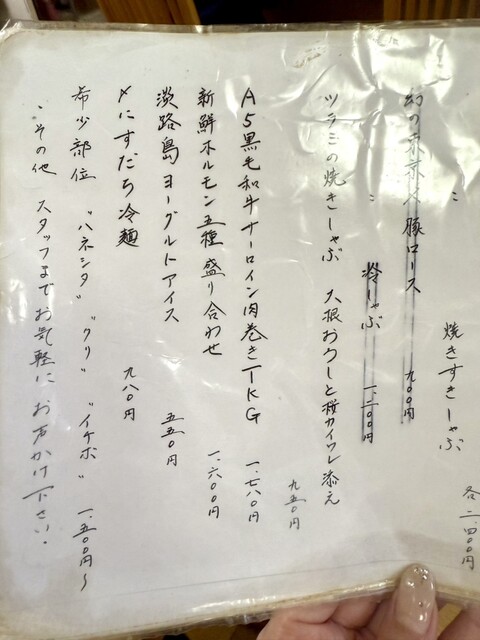 〃 焼きすきしゃぶ 各二、四〇〇円
幻の東京X豚ロース 九〇〇円
〃 冷しゃぶ 一、二〇〇円
ツラミの焼きしゃぶ 大根おろしと桜カイワレ添え
九五〇円
A5黒毛和牛サーロイン肉巻きTKG 一、七八〇円
新鮮ホルモン五種盛り合わせ 一、六〇〇円
淡路島ヨーグルトアイス 五五〇円
〆にすだち冷麺 九八〇円
希少部位 "ハネシタ" "クリ" "イチボ" 一、五〇〇円〜
・その他 スタッフまでお気軽にお声かけ下さい・